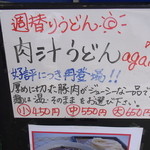 週替りうどん
肉汁うどんagain
好評につき再登場!!
厚めに切った豚肉がジューシーな一品で
温 そのままをお選び下さい。
小450円 中550円 大650円